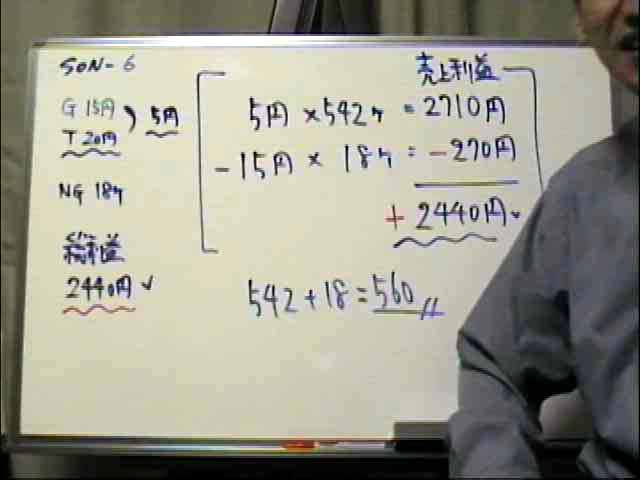 SON-6
G 15円
T 20円
5円
NG 18ケ
総利益
2440円 ✓
売上利益
5円 × 542ケ = 2710円
- 15円 × 18ケ = - 270円
+ 2440円
542 + 18 = 560